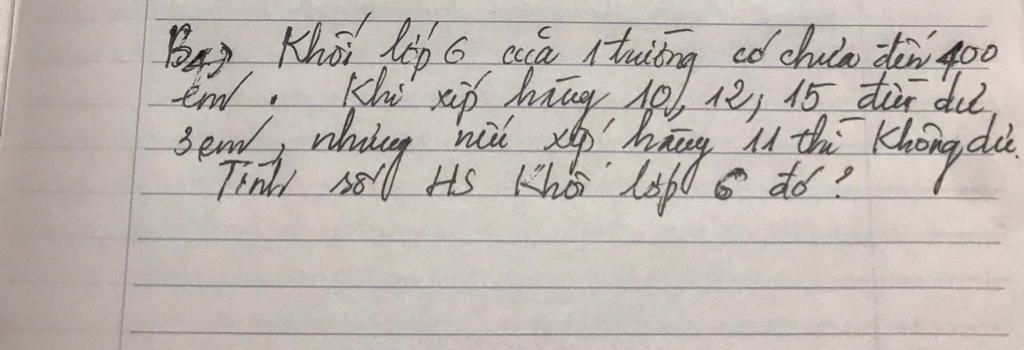 B4) Khối lớp 6 của 1 trường có chưa đến 400
em. Khi xếp hàng 10, 12, 15 đều dư
3 em, nhưng nếu xếp hàng 11 thì không dư.
Tính số HS Khối lớp 6 đó?